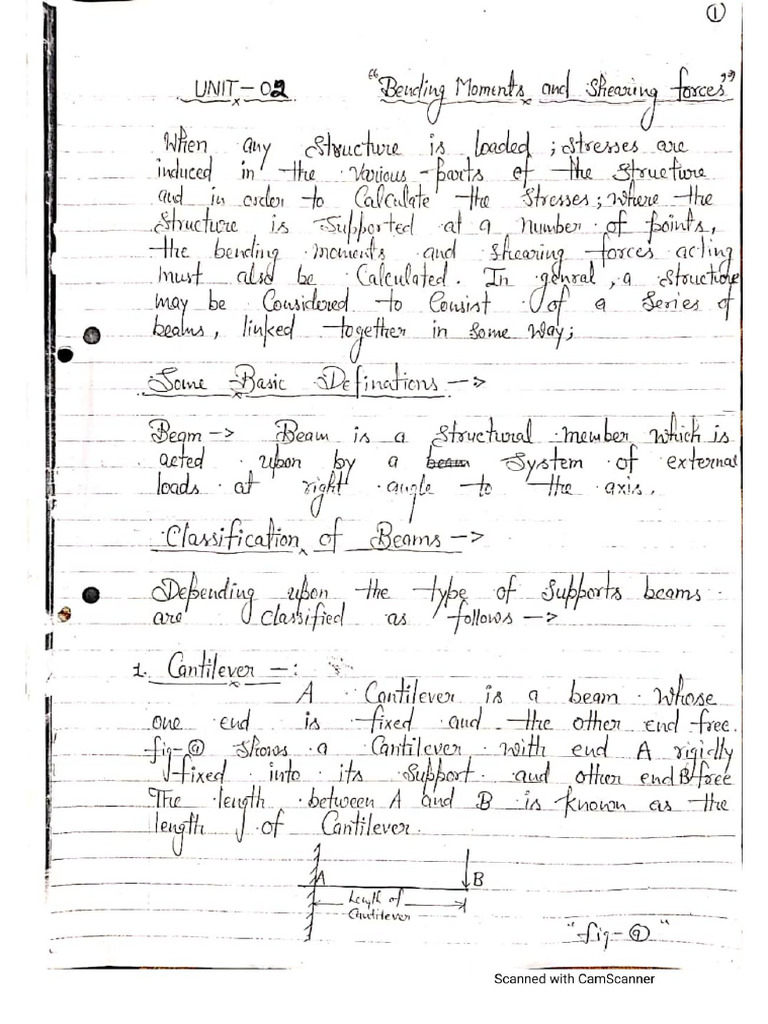 ①
UNIT-02 "Bending Moments and Shearing forces"
When any Structure is loaded ; Stresses are
induced in the various parts of the Structure
and in order to Calculate the Stresses; where the
Structure is Supported at a number of points,
the bending moments and shearing forces acting
must also be Calculated. In genral, a Structure
may be Considered to Consist of a Series of
beams, linked together in Some way;
Some Basic Definations ->
Beam -> Beam is a Structural member which is
acted upon by a beam System of external
loads at right angle to the axis.
Classification of Beams ->
Depending upon the type of Supports beams
are Classified as follows ->
1. Cantilever -:
A Cantilever is a beam whose
one end is fixed and the other end free.
fig-ⓐ Shows a Cantilever with end A rigidly
fixed into its Support and other end B free
The length between A and B is known as the
length of Cantilever.
A B
Length of
Cantilever
"fig-ⓐ"
Scanned with CamScanner